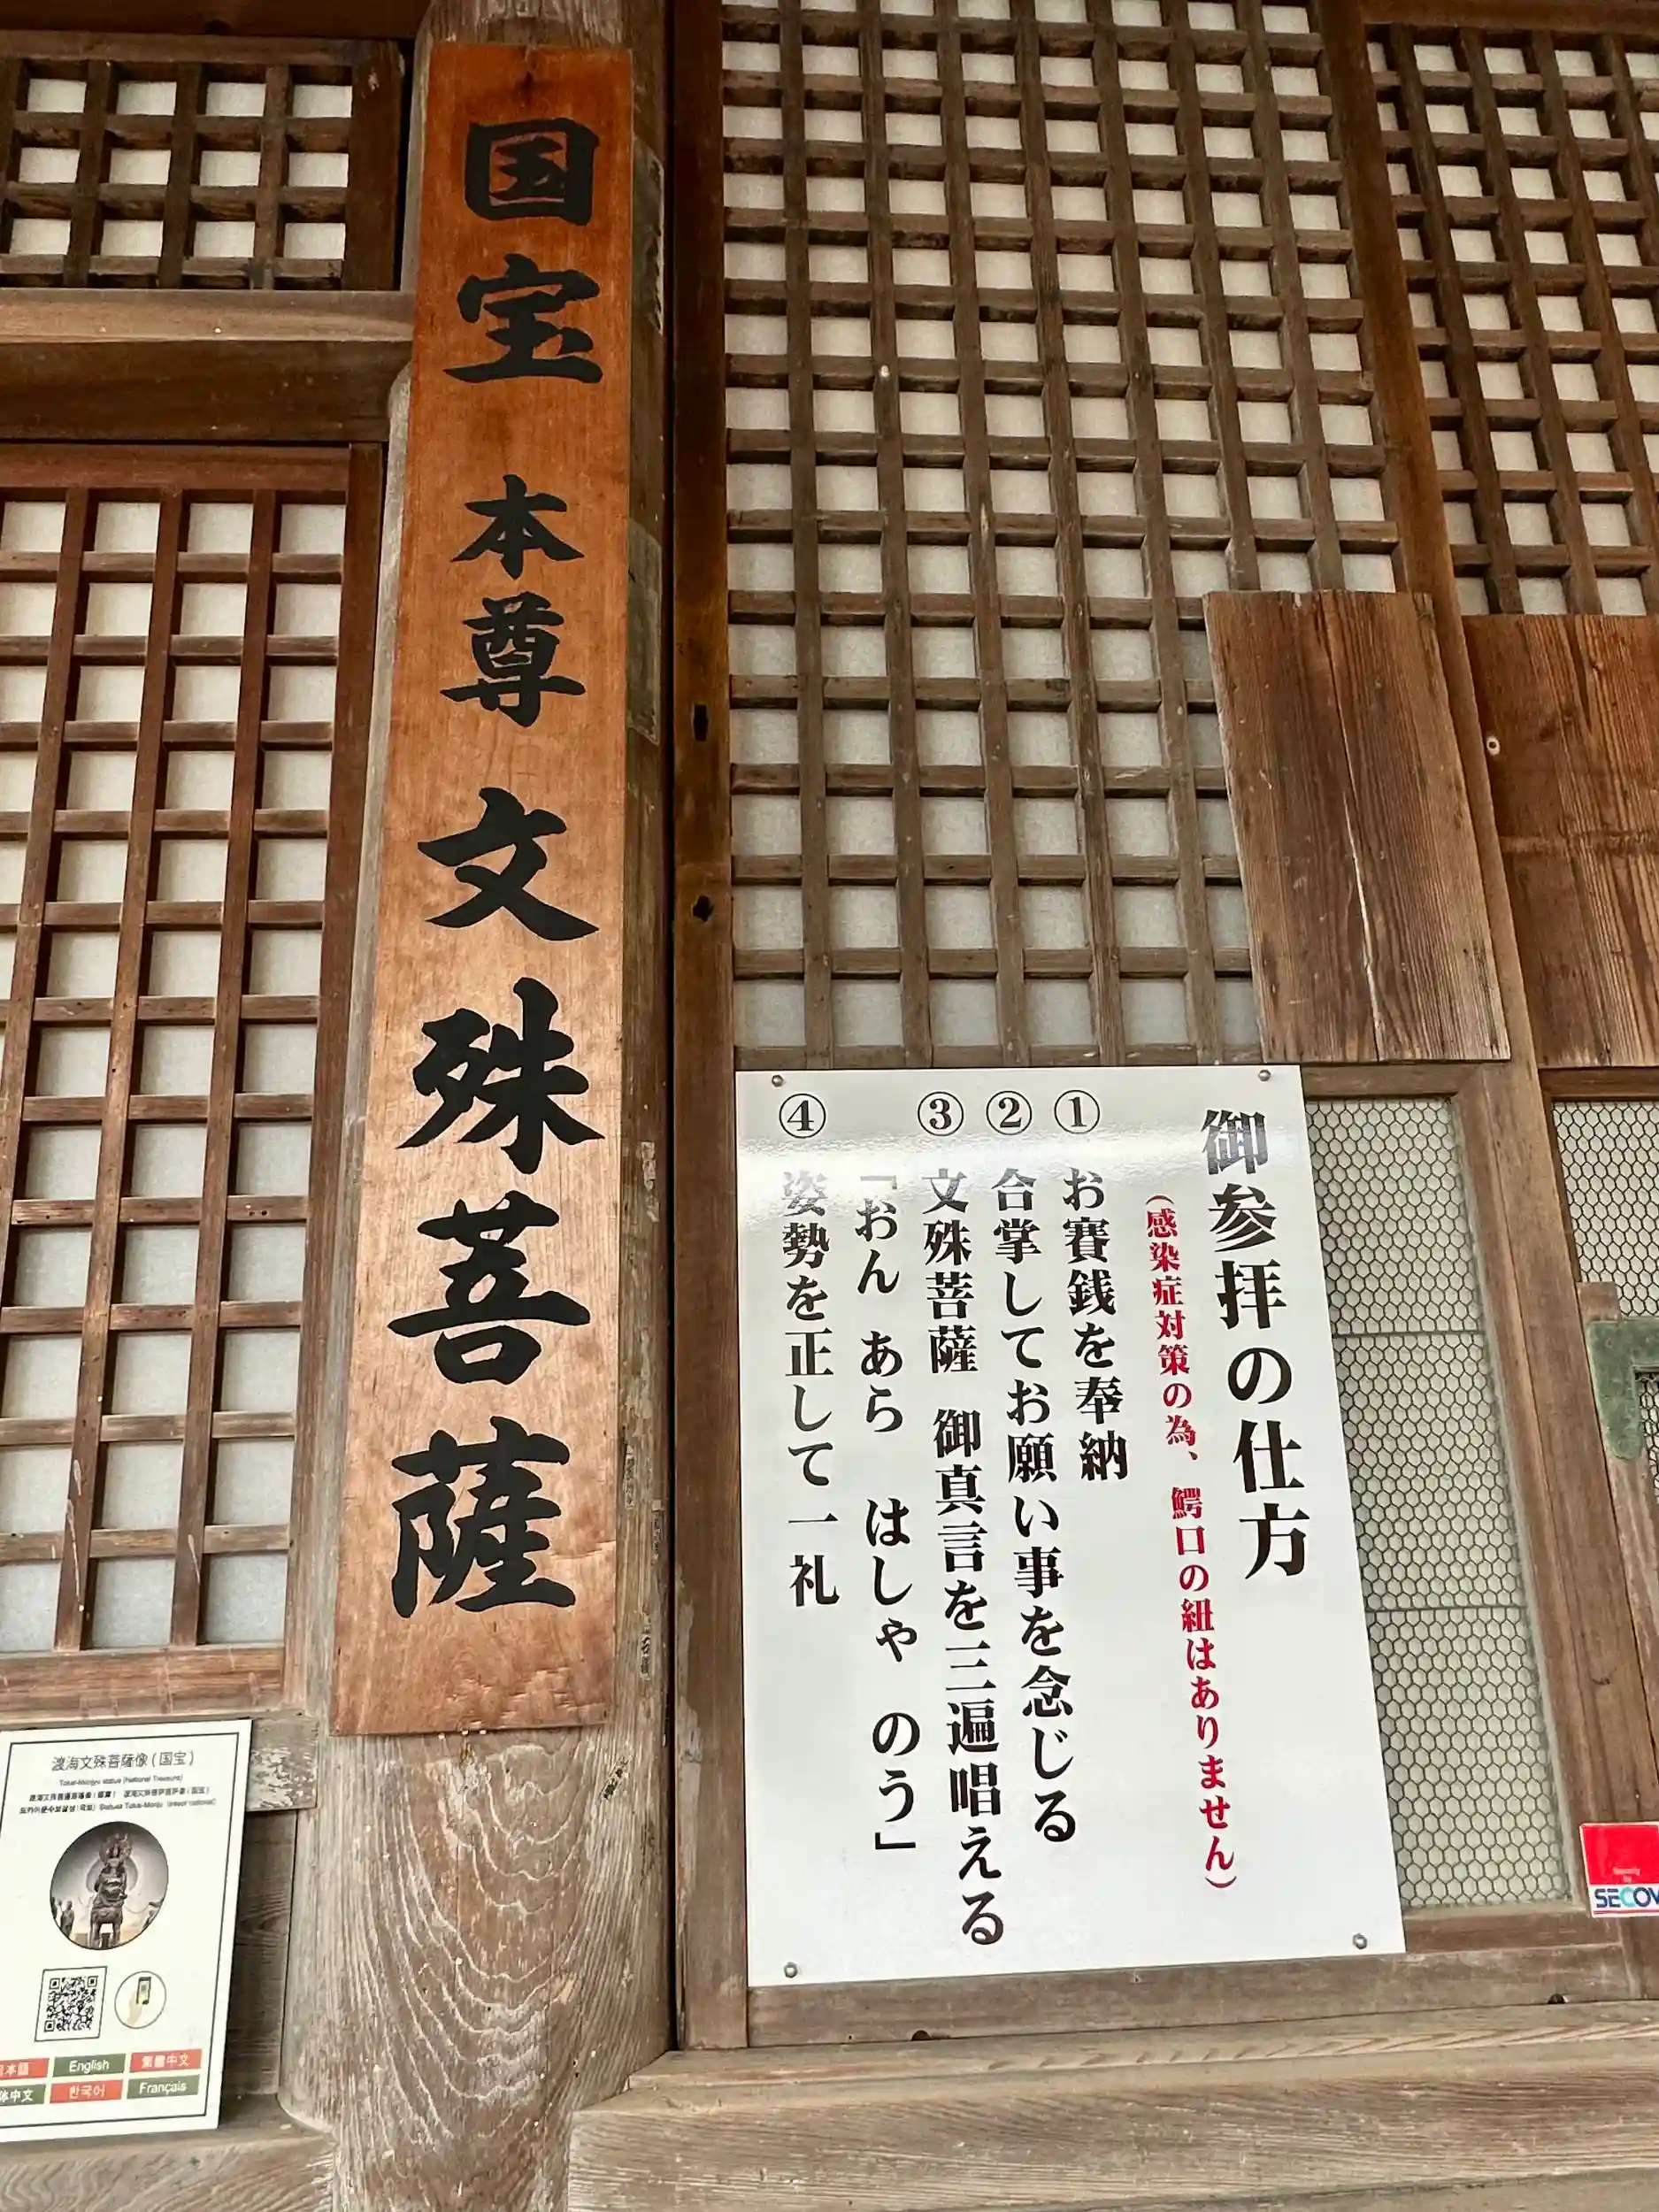 国宝 本尊 文殊菩薩
御参拝の仕方
(感染症対策の為、鰐口の紐はありません)
① お賽銭を奉納
② 合掌してお願い事を念じる
③ 文殊菩薩 御真言を三遍唱える
「おん あら はしゃ のう」
④ 姿勢を正して一礼
渡海文殊菩薩像(国宝)
Tokai-Monjyu statue (National Treasure)
日本語 English 繁體中文
体中文 한국어 Français
SECOM